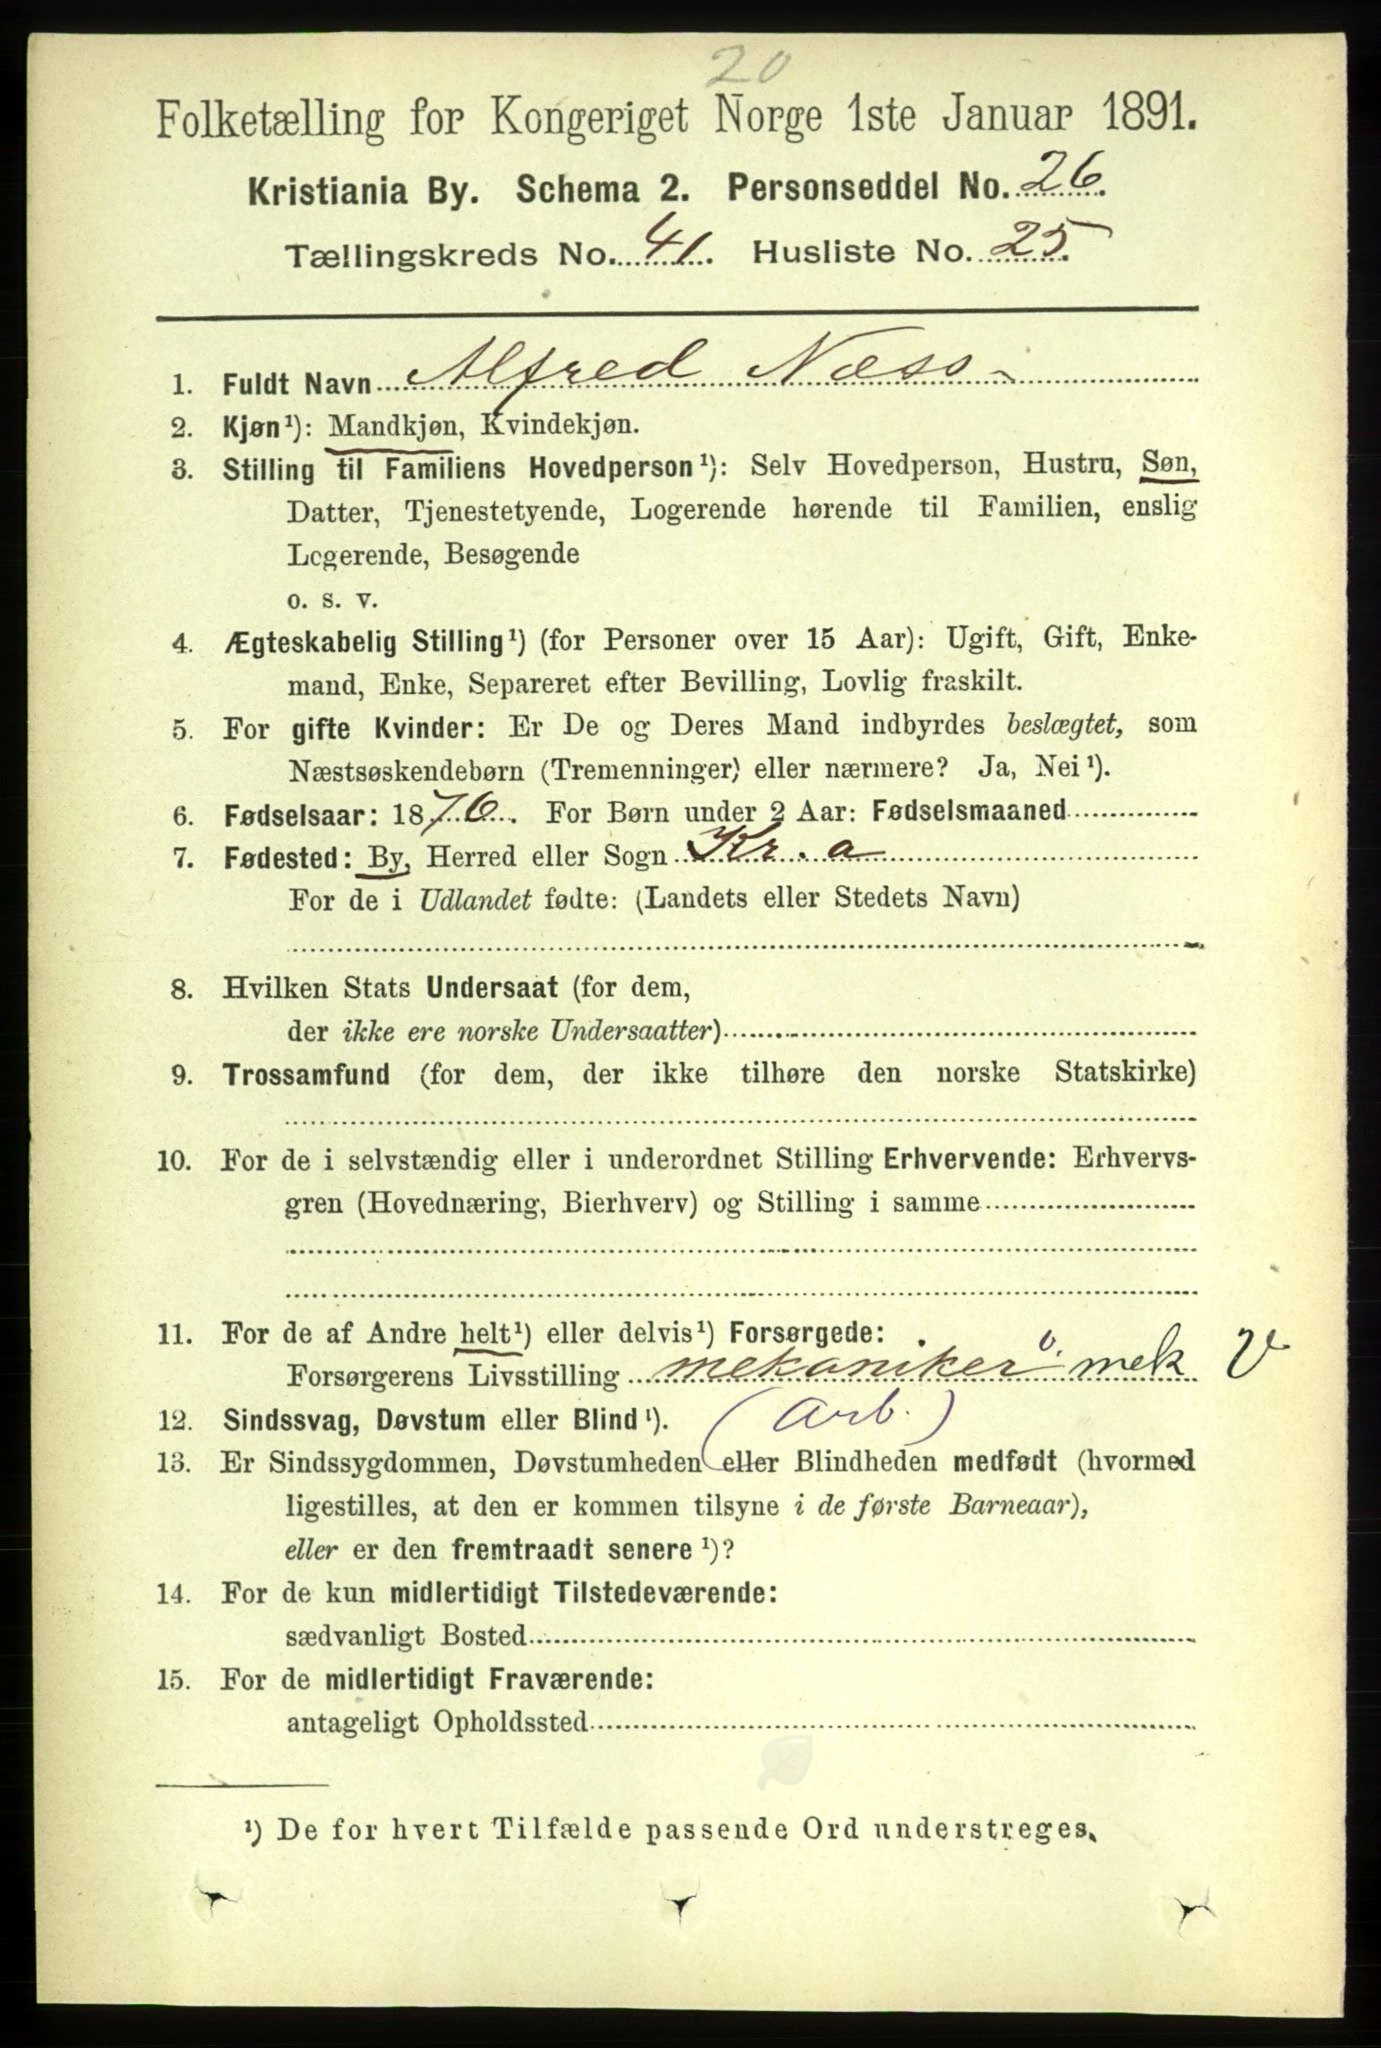 20
Folketælling for Kongeriget Norge 1ste Januar 1891.
Kristiania By. Schema 2. Personseddel No. 26.
Tællingskreds No. 41. Husliste No. 25.
1. Fuldt Navn Alfred Næss
2. Kjøn¹): Mandkjøn, Kvindekjøn.
3. Stilling til Familiens Hovedperson¹): Selv Hovedperson, Hustru, Søn,
Datter, Tjenestetyende, Logerende hørende til Familien, enslig
Logerende, Besøgende
o. s. v.
4. Ægteskabelig Stilling¹) (for Personer over 15 Aar): Ugift, Gift, Enke-
mand, Enke, Separeret efter Bevilling, Lovlig fraskilt.
5. For gifte Kvinder: Er De og Deres Mand indbyrdes beslægtet, som
Næstsøskendebørn (Tremenninger) eller nærmere? Ja, Nei¹).
6. Fødselsaar: 1876. For Børn under 2 Aar: Fødselsmaaned
7. Fødested: By, Herred eller Sogn Kr.a
For de i Udlandet fødte: (Landets eller Stedets Navn)
8. Hvilken Stats Undersaat (for dem,
der ikke ere norske Undersaatter)
9. Trossamfund (for dem, der ikke tilhøre den norske Statskirke)
10. For de i selvstændig eller i underordnet Stilling Erhvervende: Erhvervs-
gren (Hovednæring, Bierhverv) og Stilling i samme
11. For de af Andre helt¹) eller delvis¹) Forsørgede:
Forsørgerens Livsstilling mekaniker mek V
12. Sindssvag, Døvstum eller Blind¹). (Arb.)
13. Er Sindssygdommen, Døvstumheden eller Blindheden medfødt (hvormed
ligestilles, at den er kommen tilsyne i de første Barneaar),
eller er den fremtraadt senere¹)?
14. For de kun midlertidigt Tilstedeværende:
sædvanligt Bosted
15. For de midlertidigt Fraværende:
antageligt Opholdssted
¹) De for hvert Tilfælde passende Ord understreges.